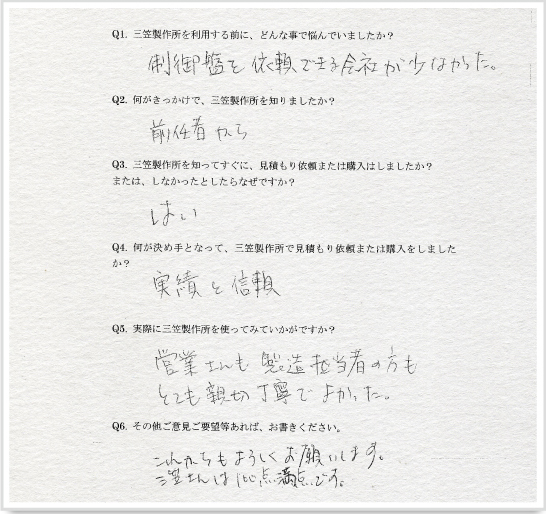 Q1. 三笠製作所を利用する前に、どんな事で悩んでいましたか？
制御盤を依頼できる会社が少なかった。
Q2. 何がきっかけで、三笠製作所を知りましたか？
前任者から
Q3. 三笠製作所を知ってすぐに、見積もり依頼または購入はしましたか？
または、しなかったとしたらなぜですか？
はい
Q4. 何が決め手となって、三笠製作所で見積もり依頼または購入をしました
か？
実績と信頼
Q5. 実際に三笠製作所を使ってみていかがですか？
営業さんも製造担当者の方も
とても親切丁寧でよかった。
Q6. その他ご意見ご要望等あれば、お書きください。
これからもよろしくお願いします。
三笠さんは100点満点です。